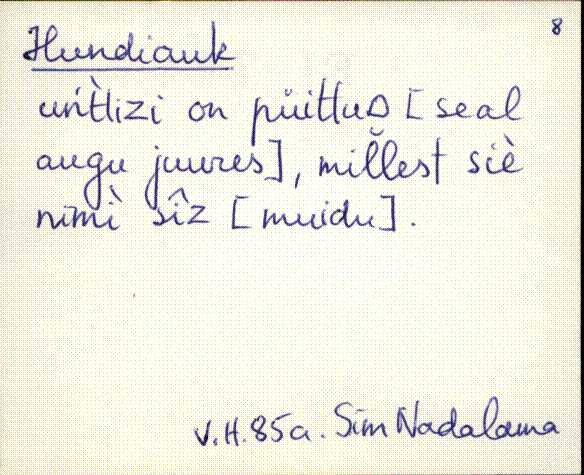 8
Hundiauk
uńt̀lizi on püittuD [seal
augu juures], mil̆lest siè
nimì sîz [muidu].
V.H. 85a. Sim Nadalama